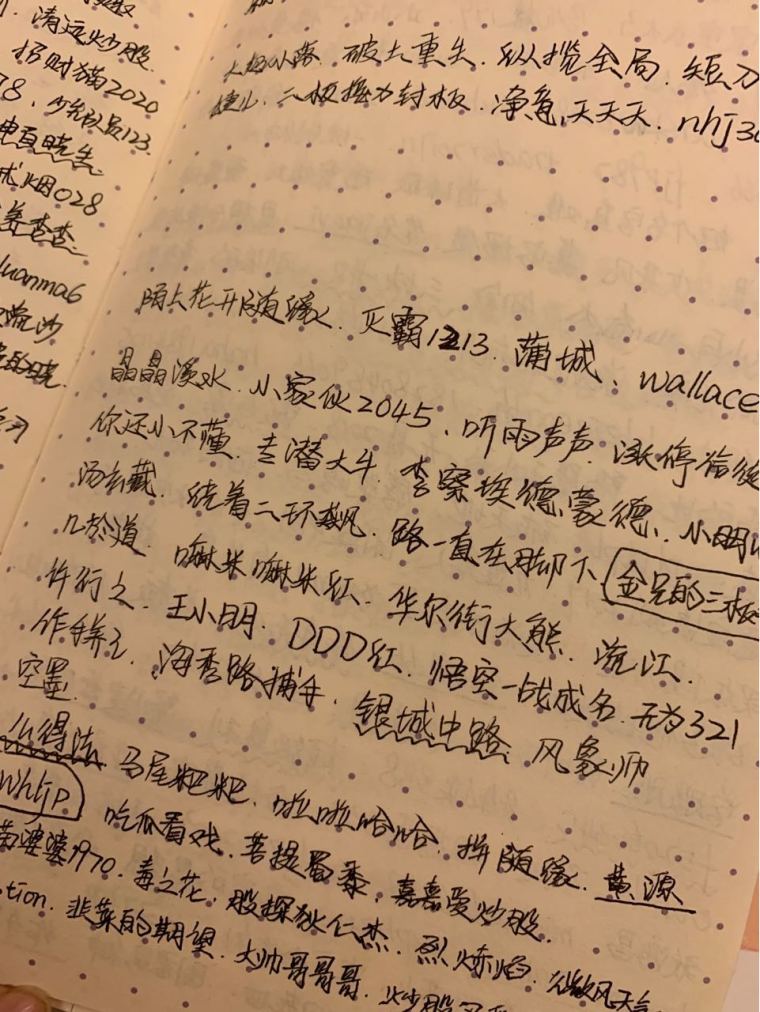 清远炒股
招财猫2020
78、少先队员123.
028
养杏杏
luanma6
流沙
破土重生. 纵揽全局. 短刀
二板接力封板. 净息天天天. nhj30
陌上花开随缘. 灭霸1213. 蒲城、wallace
晶晶溪水. 小家伙2045. 听雨声声. 涨停
你还小不懂. 专潜大牛. 李察埃德蒙德. 小明
汤玄藏. 绕着二环飙. 路一直在脚下 金兄的三板
嘛米嘛米红. 华尔街大熊. 沅江.
许行之. 王小明. DDD红. 悟空一战成名. 无为321
作手养. 海秀路捕手. 银城中路. 风象师
空墨.
么得法. 马屋粑粑. 啦啦哈哈. 拼随缘. 黄源
Whljp 吃瓜看戏. 菩提眉黍. 嘉嘉爱炒股.
苗婆婆1970. 毒之花. 股探狄仁杰. 烈炼焰. 微风天气
tion. 韭菜的期望. 大帅哥哥哥. 炒股